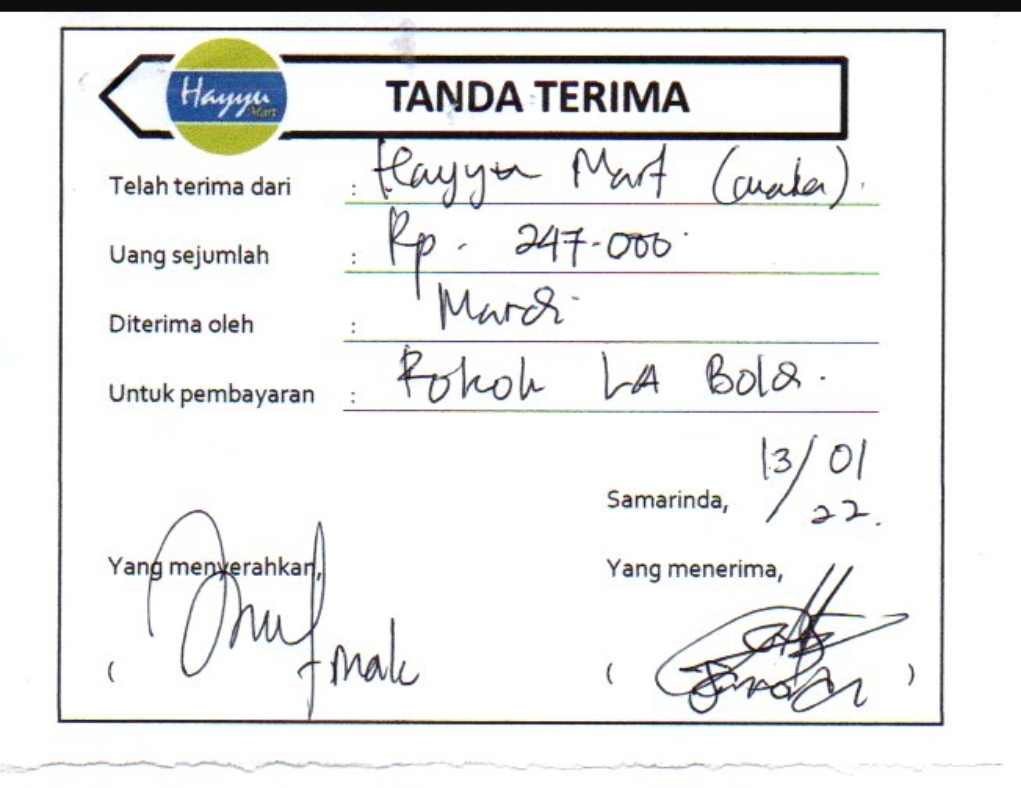 Hayyu Mart
TANDA TERIMA
Telah terima dari : Hayyu Mart
Uang sejumlah : Rp. 247.000
Diterima oleh : Mardi
Untuk pembayaran : Rokok LA Bold.
13/01
Samarinda, 22.
Yang menyerahkan, Yang menerima,
( mak ( )